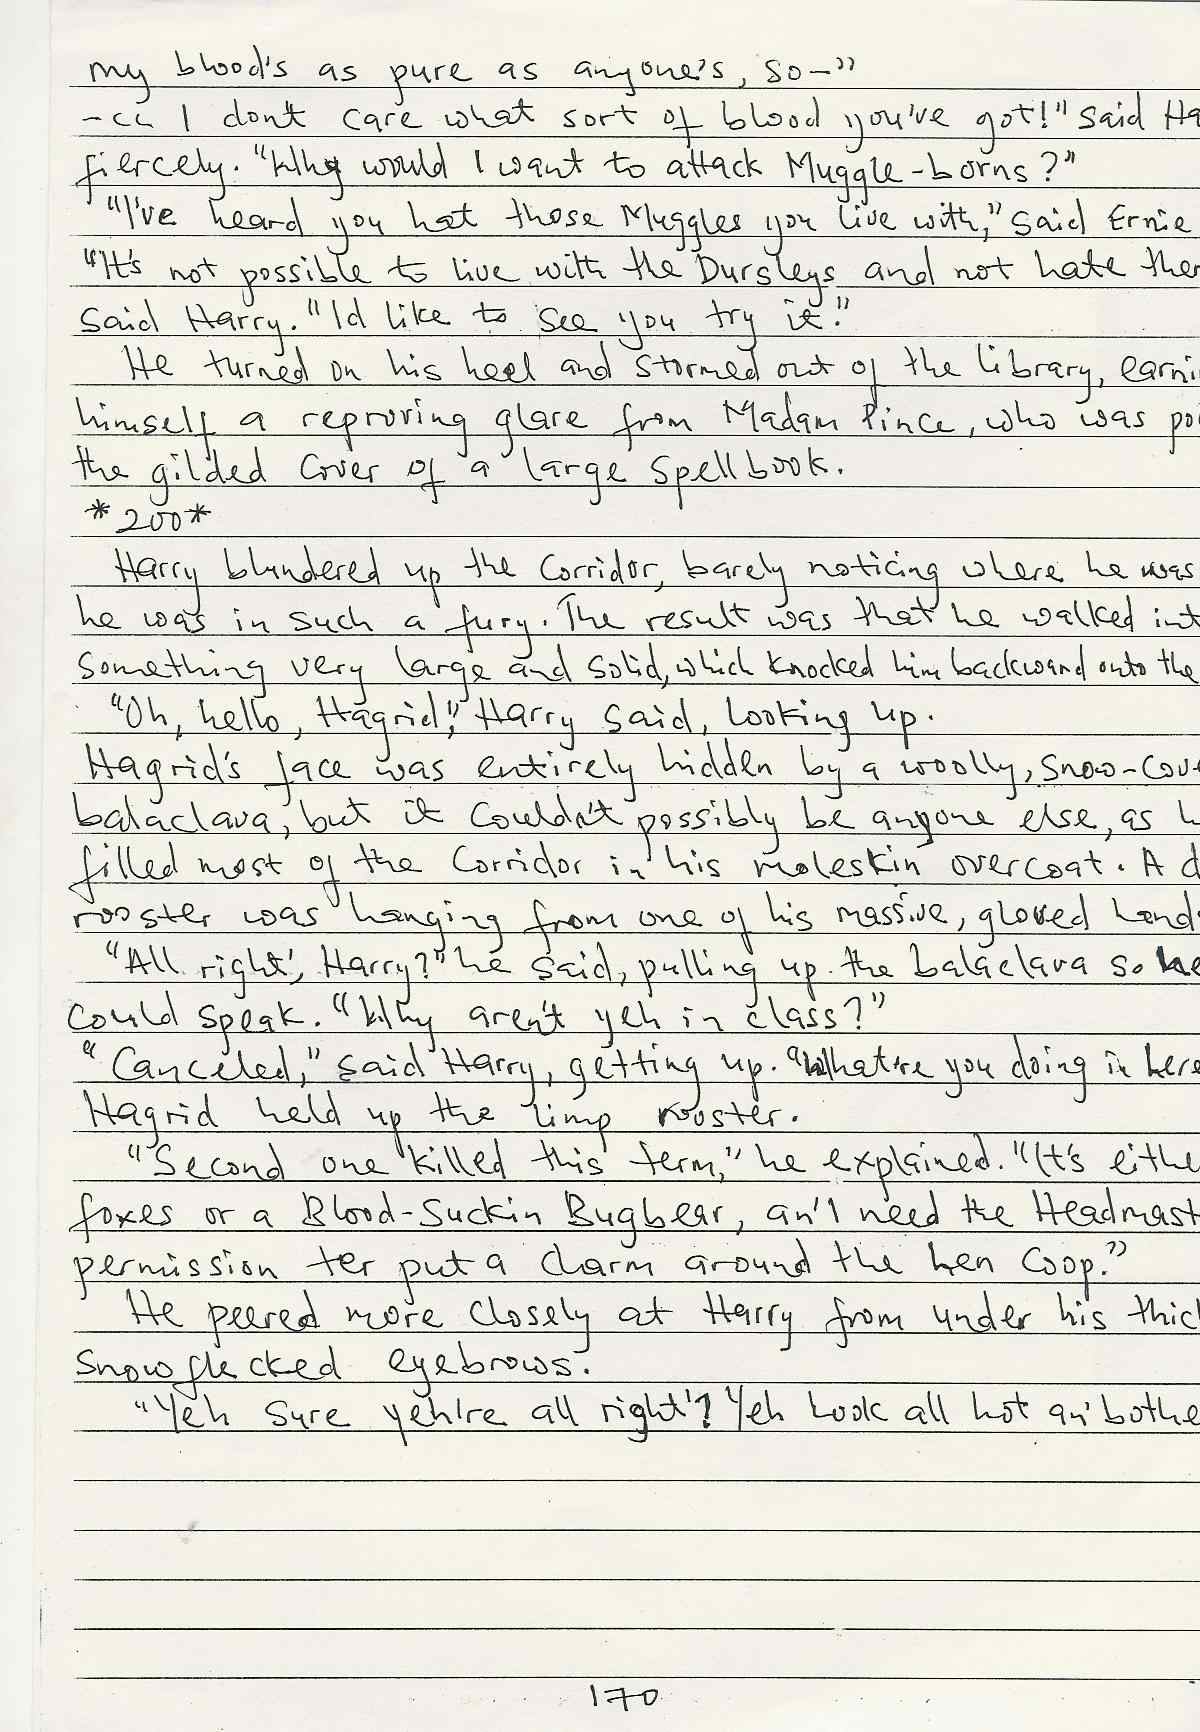 my blood's as pure as anyone's, so—"
-"I don't care what sort of blood you've got!" said Ha
fiercely. "Why would I want to attack Muggle-borns?"
"I've heard you hat those Muggles you live with," said Ernie
"It's not possible to live with the Dursleys and not hate ther
said Harry. "Id like to see you try it."
He turned on his heel and stormed out of the library, earni
himself a reproving glare from Madam Pince, who was po
the gilded cover of a large spellbook.
*200*
Harry blundered up the corridor, barely noticing where he was
he was in such a fury. The result was that he walked int
something very large and solid, which knocked him backward onto the
"Oh, hello, Hagrid," Harry said, looking up.
Hagrid's face was entirely hidden by a woolly, snow-cove
balaclava, but it couldn't possibly be anyone else, as h
filled most of the corridor in his moleskin overcoat. A d
rooster was hanging from one of his massive, gloved hands
"All right, Harry?" he said, pulling up the balaclava so he
could speak. "Why aren't yeh in class?"
"Canceled," said Harry, getting up. "What're you doing in here
Hagrid held up the limp rooster.
"Second one killed this term," he explained. "It's eithe
foxes or a Blood-Suckin Bugbear, an' I need the Headmast
permission ter put a charm around the hen coop."
He peered more closely at Harry from under his thic
snowflecked eyebrows.
"Yeh sure yeh're all right? Yeh look all hot an' bothe
170